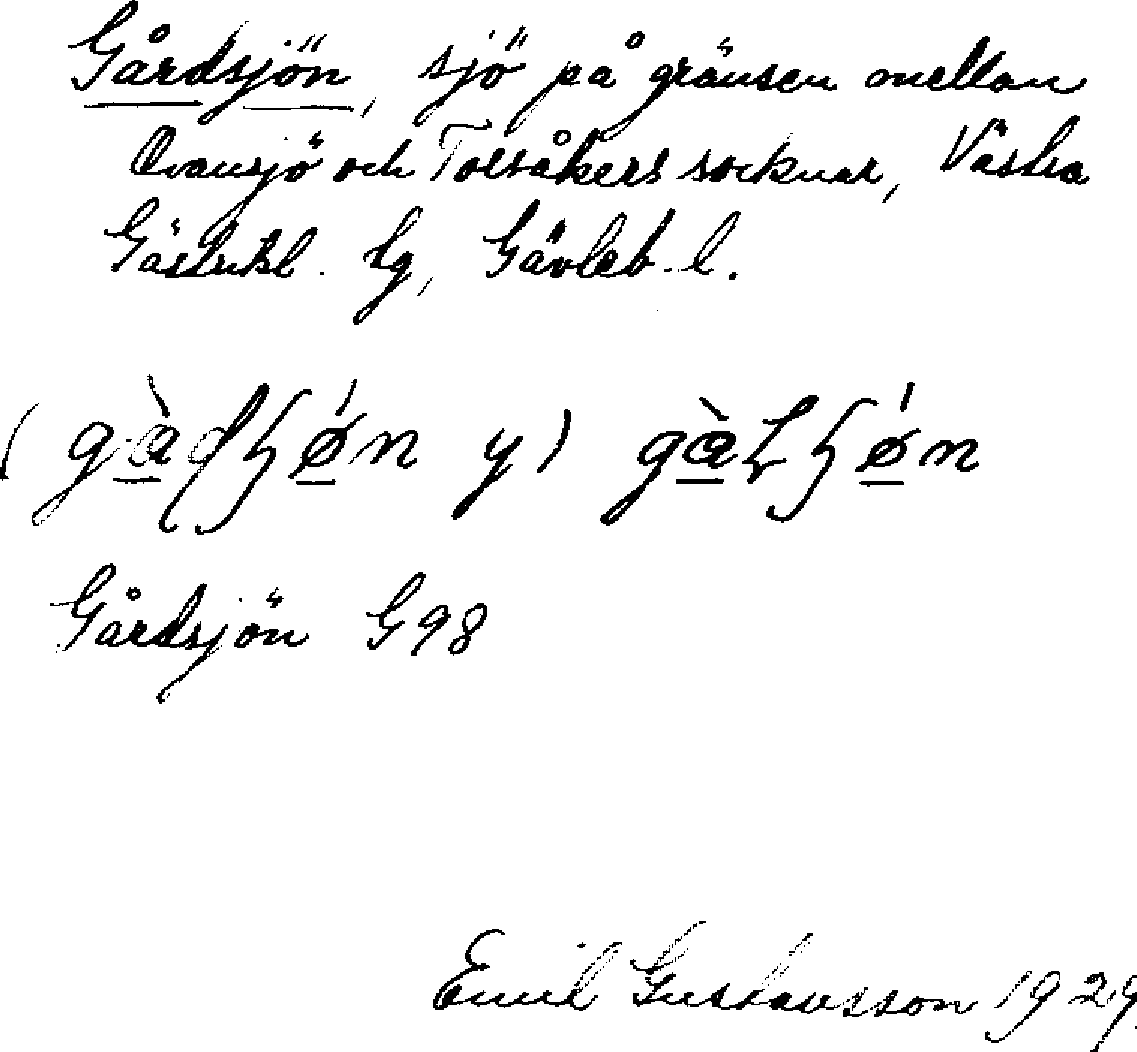 Gårdsjön, sjö på gränsen mellan
Ovansjö och Torsåkers socknar, Västra
Gästrikl. hg, Gävleb. l.
Gårdsjön G98
Emil Gustavsson 1929.